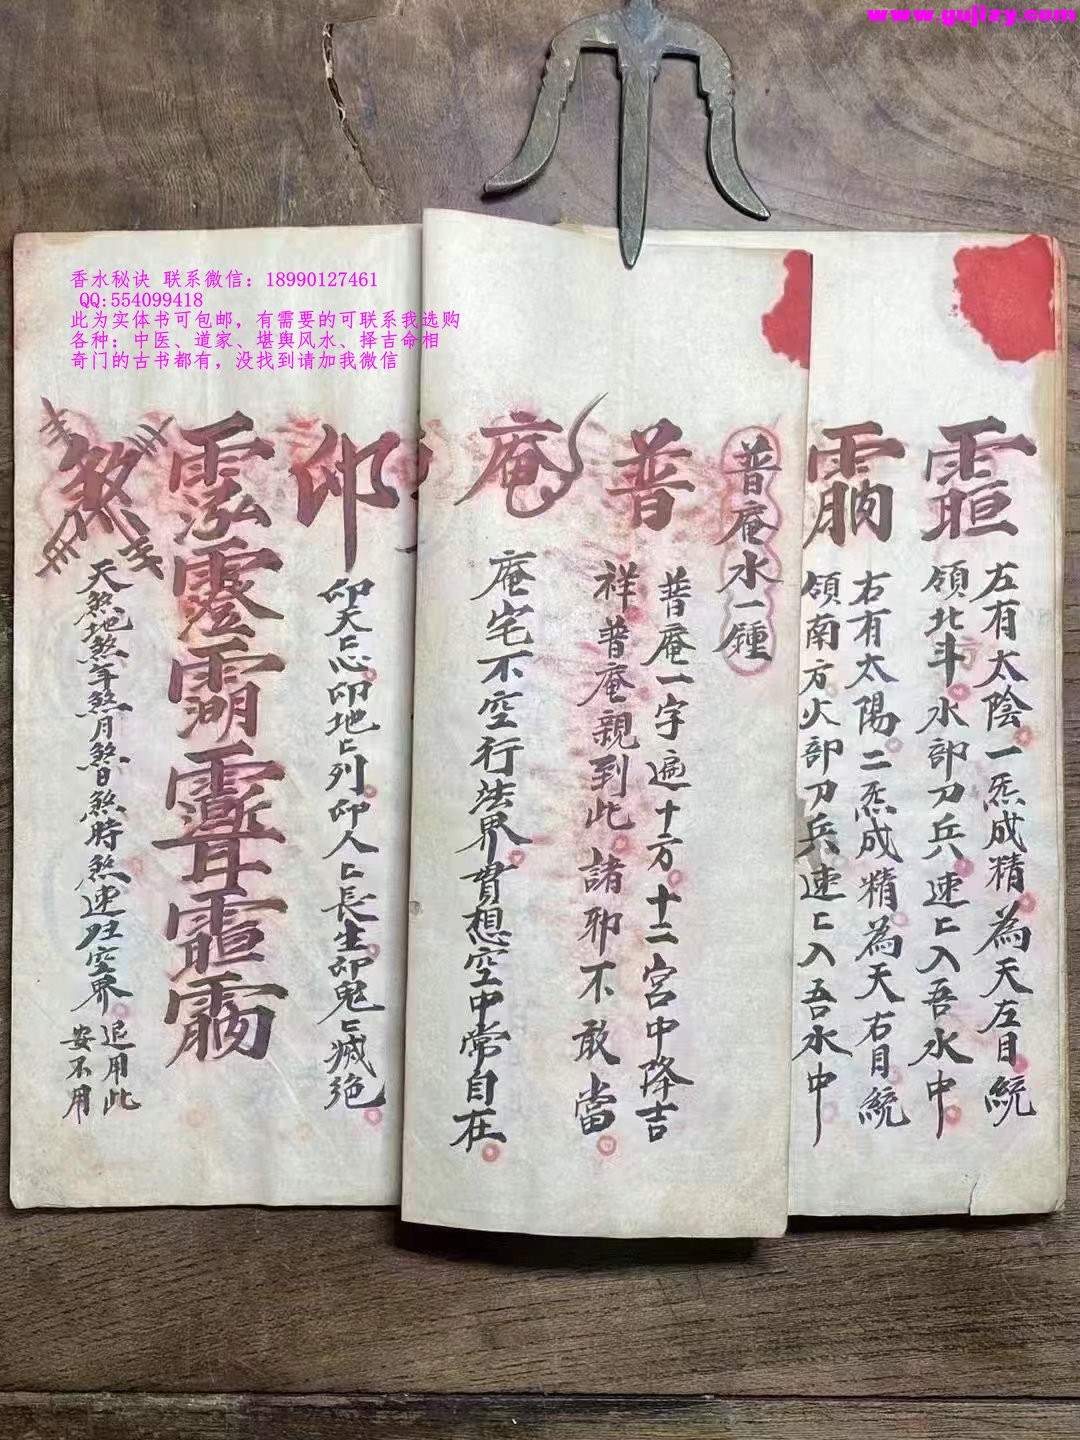 www.gujizy.com
香水秘诀 联系微信：18990127461
QQ:554099418
此为实体书可包邮，有需要的可联系我选购
各种：中医、道家、堪舆风水、择吉命相
奇门的古书都有，没找到请加我微信
左有太陰一炁成精為天左目統
領北斗水部刀兵速〻入吾水中
右有太陽二炁成精為天右目統
領南方火部刀兵速〻入吾水中
普庵水一鍾
普
普庵一字遍十方十二宮中降吉
祥普庵親到此諸邪不敢當
庵
庵宅不空行法界貫想空中常自在
卬
卬天〻忘卬地〻列卬人〻長生卬鬼〻滅絶
煞
天煞地煞年煞月煞日煞時煞速赴空界
追用此
安不用